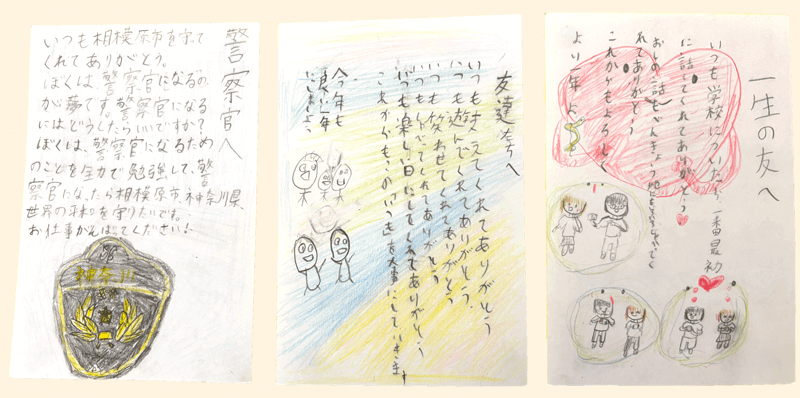 警察官へ
いつも相模原市を守って
くれてありがとう。
ぼくは、警察官になるの
が夢です。警察官になる
にはどうしたらいいですか?
ぼくは、警察官になるため
のことを全力で勉強して、警
察官になったら相模原市、神奈川県、
世界の平和を守りたいです。
お仕事がんばってください!
神奈川
友達たちへ
いつも支えてくれてありがとう
いつも遊んでくれてありがとう。
いつも笑わせてくれてありがとう
いつもならべてくれてありがとう
いつも楽しい日にしてくれてありがとう
これからも、この「いつも」を大事にしていきます
今年も
良い年
にしましょう
一生の友へ
いつも学校についたら、一番最初
に話してくれてありがとう
れてありがとう
これからもよろしく